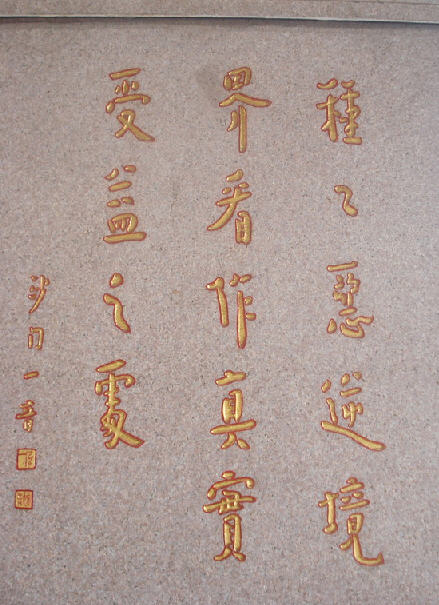 種〻惡逆境
界看作真實
受益之處
沙门一音